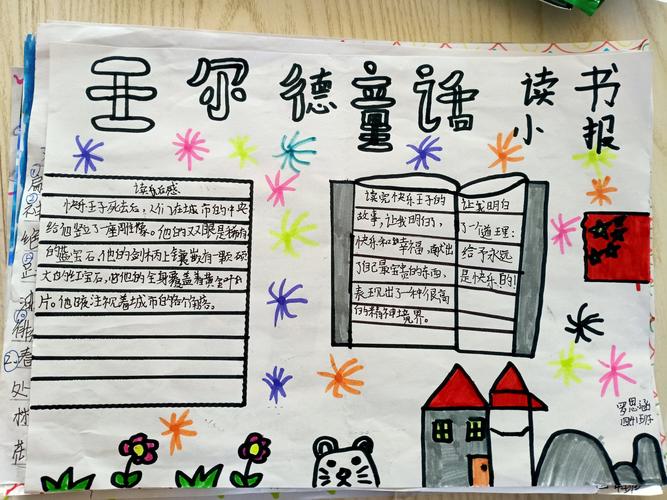 王尔德童话 读书
小报
读后感
快乐王子死去后，人们在城市的中央
给他竖立了一座雕像。他的双眼是稀有
的蓝宝石，他的剑柄上镶嵌有一颗硕
大的红宝石，他的全身覆盖着黄金叶
片。他日夜注视着城市的各个角落。
读完快乐王子的
故事，让我明白了，
快乐和幸福，献出
了自己最宝贵的东西，
表现出了一种很高
的精神境界。
让我明白
了一个道理：
给予永远
是快乐的！
罗思涵
四班
春
处